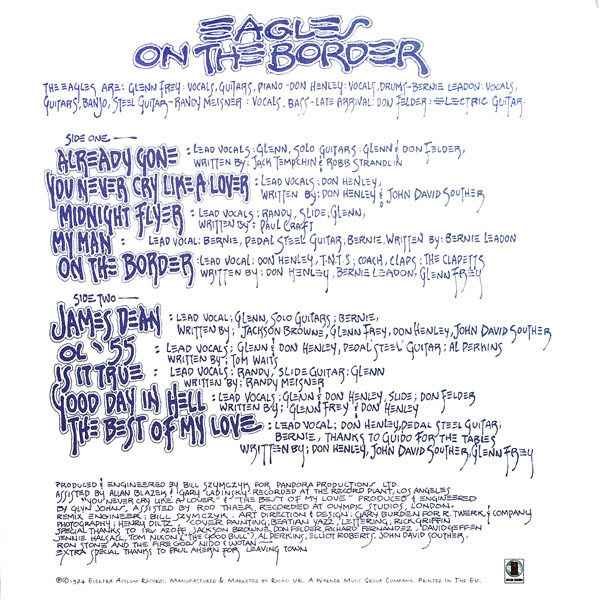 EAGLES
ON THE BORDER
THE EAGLES ARE: GLENN FREY: VOCALS, GUITARS, PIANO - DON HENLEY: VOCALS, DRUMS - BERNIE LEADON: VOCALS,
GUITARS, BANJO, STEEL GUITAR - RANDY MEISNER: VOCALS, BASS - LATE ARRIVAL: DON FELDER: ELECTRIC GUITAR
SIDE ONE —
ALREADY GONE : LEAD VOCALS: GLENN, SOLO GUITARS: GLENN & DON FELDER,
WRITTEN BY: JACK TEMPCHIN & ROBB STRANDLIN
YOU NEVER CRY LIKE A LOVER : LEAD VOCALS: DON HENLEY,
WRITTEN BY: DON HENLEY & JOHN DAVID SOUTHER
MIDNIGHT FLYER : LEAD VOCALS: RANDY, SLIDE, GLENN,
WRITTEN BY: PAUL CRAFT
MY MAN : LEAD VOCAL: BERNIE, PEDAL STEEL GUITAR, BERNIE. WRITTEN BY: BERNIE LEADON
ON THE BORDER : LEAD VOCAL: DON HENLEY, T.N.T.S; COACH, CLAPS: THE CLAPETTS
WRITTEN BY: DON HENLEY, BERNIE LEADON, GLENN FREY
SIDE TWO —
JAMES DEAN : LEAD VOCAL; GLENN, SOLO GUITARS: BERNIE,
WRITTEN BY; JACKSON BROWNE, GLENN FREY, DON HENLEY, JOHN DAVID SOUTHER
OL' 55 : LEAD VOCALS: GLENN & DON HENLEY, PEDAL STEEL GUITAR: AL PERKINS
WRITTEN BY: TOM WAITS
IS IT TRUE : LEAD VOCALS: RANDY, SLIDE GUITAR: GLENN
WRITTEN BY: RANDY MEISNER
GOOD DAY IN HELL : LEAD VOCALS; GLENN & DON HENLEY, SLIDE; DON FELDER
WRITTEN BY: GLENN FREY & DON HENLEY
THE BEST OF MY LOVE : LEAD VOCAL; DON HENLEY, PEDAL STEEL GUITAR;
BERNIE, THANKS TO GUIDO FOR THE TABLES
WRITTEN BY; DON HENLEY, JOHN DAVID SOUTHER, GLENN FREY
PRODUCED & ENGINEERED BY BILL SZYMCZYK FOR PANDORA PRODUCTIONS LTD.
ASSISTED BY ALLAN BLAZEK & GARY LADINSKY RECORDED AT THE RECORD PLANT, LOS ANGELES
"YOU NEVER CRY LIKE A LOVER" & "THE BEST OF MY LOVE" PRODUCED & ENGINEERED
BY GLYN JOHNS, ASSISTED BY ROD THAER, RECORDED AT OLYMPIC STUDIOS, LONDON.
REMIX ENGINEER: BILL SZYMCZYK. ART DIRECTION & DESIGN: GARY BURDEN FOR R. TWERK & COMPANY
PHOTOGRAPHY: HENRY DILTZ COVER PAINTING, BEATIAN YAZZ, LETTERING, RICK GRIFFIN
SPECIAL THANKS TO IRV AZOFF, JACKSON BROWNE, DON FELDER, RICHARD FERNANDEZ, DAVID GEFFEN
JENNIE HALSALL, TOM NIXON ("THE GOOD BULL"), AL PERKINS, ELLIOT ROBERTS, JOHN DAVID SOUTHER,
RON STONE AND THE FIRE GOD
EXTRA SPECIAL THANKS TO PAUL AHERN FOR LEAVING TOWN
℗©1974 ELEKTRA ASYLUM RECORDS. MANUFACTURED & MARKETED BY RHINO UK. A WARNER MUSIC GROUP COMPANY. PRINTED IN THE EU.